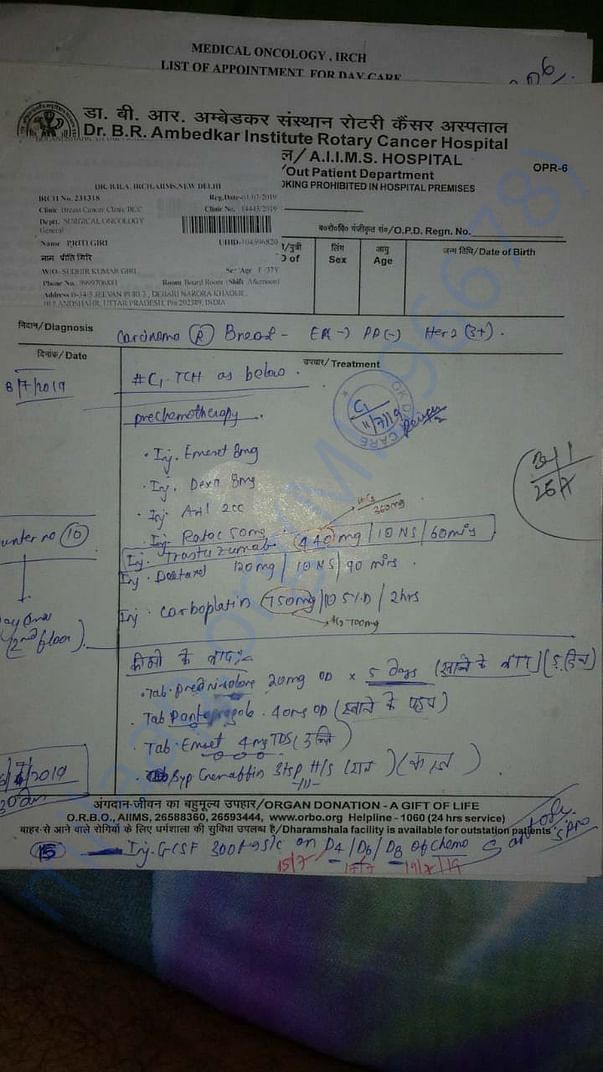 MEDICAL ONCOLOGY, IRCH
LIST OF APPOINTMENT FOR DAY CARE
डा. बी. आर. अम्बेडकर संस्थान रोटरी कैंसर अस्पताल
Dr. B.R. Ambedkar Institute Rotary Cancer Hospital
ल/ A.I.I.M.S. HOSPITAL
OPR-6
Out Patient Department
OKING PROHIBITED IN HOSPITAL PREMISES
DR. B.R.A. IRCH, AIIMS, NEW DELHI
IRCH No. 231318
Clinic Breast Cancer Clinic BCC
Deptt. SURGICAL ONCOLOGY
General
Name PRITI GIRI
नाम प्रीति गिरि
W/O- SUDHIR KUMAR GIRI
Phone No. 9999706881
Room Board Room (Shift Afternoon)
ब०रो०वि० पंजीकृत सं०/O.P.D. Regn. No.
लिंग
Sex
आयु
Age
जन्म तिथि/Date of Birth
निदान/Diagnosis
Carcinoma (R) Breast - ER(-) PR(-) Her2 (3+).
दिनांक/Date
उपचार/Treatment
8/7/2019
#C1-TCH as below.
prechemotherapy.
C1
11/7/19
DAY CARE
Inj. Emeset 8mg
Inj. Dexa 8mg
Inj. Avil 2cc
360mg
Inj. Ratac 50mg
Inj. Trastuzumab (440)mg/10NS/60mins
Inj. Docetaxel 120mg/10NS/90 mins.
Inj. Carboplatin (750mg)/10 5%D/2hrs
700mg
unter no (10)
(2nd floor)
कीमो के बाद:-
Tab. Prednisolone 20mg OD x 5 days (खाने के बाद) (5 दिन)
Tab Pantoprazole 40mg OD (खाने के पहले)
Tab. Emset 4mg TDS (3 दिन)
Syp Cremaffin 3tsp H/S
अंगदान-जीवन का बहुमूल्य उपहार/ORGAN DONATION - A GIFT OF LIFE
O.R.B.O., AIIMS, 26588360, 26593444, www.orbo.org Helpline - 1060 (24 hrs service)
बाहर-से आने वाले रोगियों के लिए धर्मशाला की सुविधा उपलब्ध है/Dharamshala facility is available for outstation patients
15
Inj. GCSF 300 μg s/c on D4/D6/D8 of chemo
15/7 17/7 19/7/19